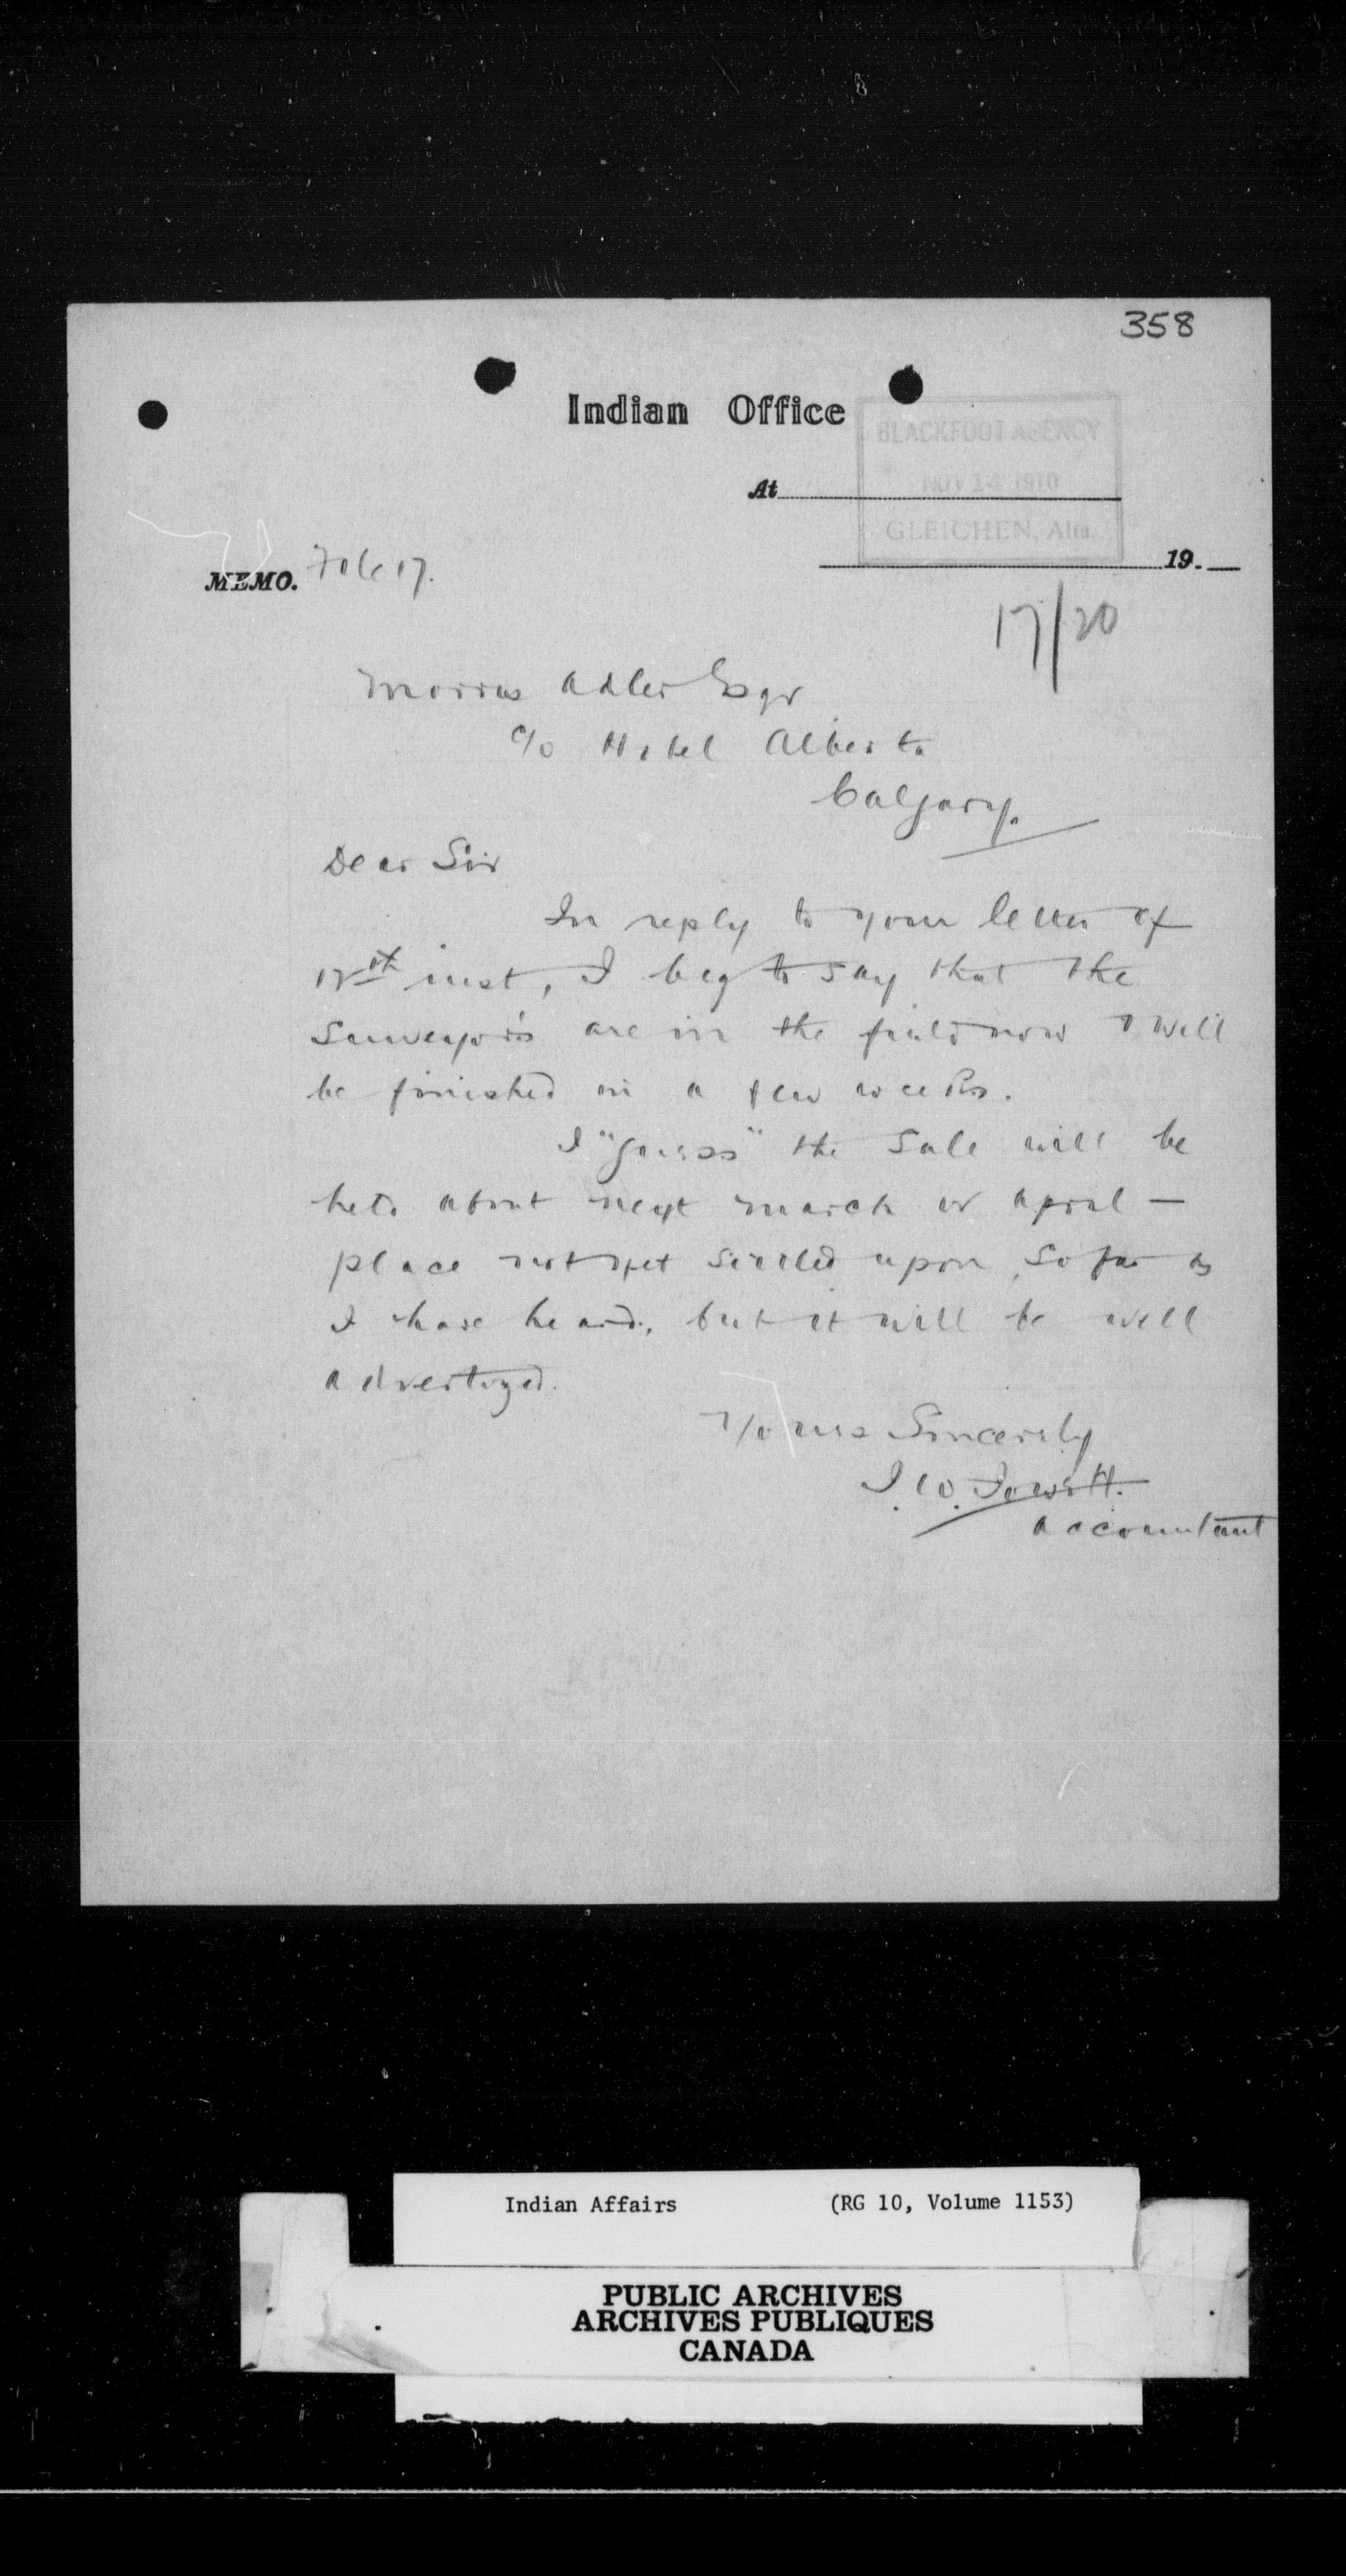 358
Indian Office
BLACKFOOT AGENCY
At
NOV 14 1910
GLEICHEN, Alta.
19
MEMO.
17/20
Morris Adler Esqr
c/o Hotel Alberta
Calgary.
Dear Sir
In reply to your letter of
12th inst, I beg to say that the
Surveyors are in the field now & will
be finished in a few weeks.
I "guess" the Sale will be
held about next March or April —
place not yet settled upon, so far as
I have heard, but it will be well
advertized.
Yours Sincerely
J. W. Jowett.
Accountant
Indian Affairs (RG 10, Volume 1153)
PUBLIC ARCHIVES
ARCHIVES PUBLIQUES
CANADA